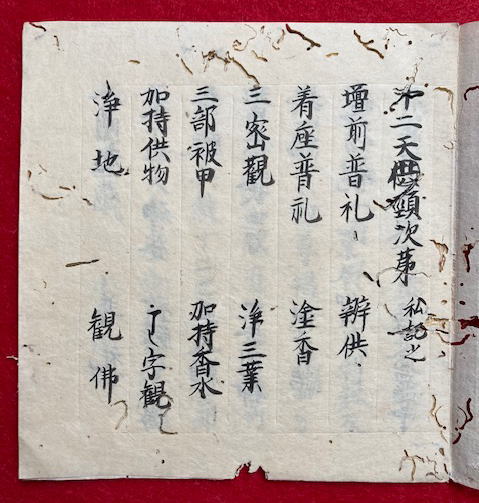 二天供次第 私記之
増前普礼 辨供
着座普礼 塗香
三密觀 浄三業
三部被甲 加持香水
加持供物 字観
浄地 観佛